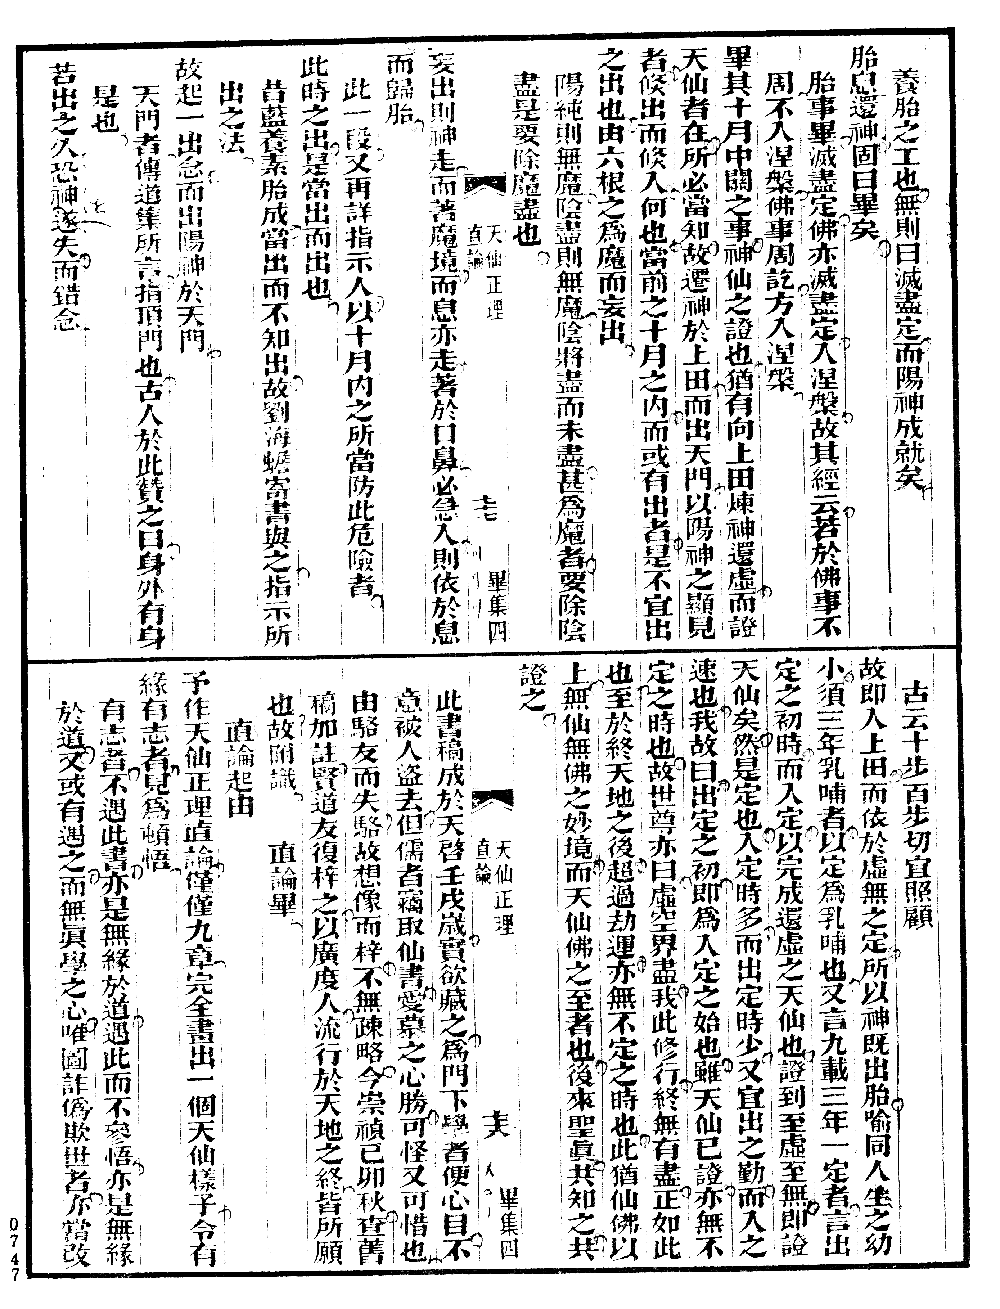 養胎之工也無則曰滅盡定而陽神成就矣
胎息還神固曰畢矣
胎事畢滅盡定佛亦滅盡定入涅槃故其經云若於佛事不
周不入涅槃佛事周訖方入涅槃
畢其十月中關之事神仙之證也猶有向上田煉神還虛而證
天仙者在所必當知故遷神於上田而出天門以陽神之顯見
者倏出而倏入何也當前之十月之內而或有出者是不宜出
之出也由六根之爲魔而妄出
陽純則無魔陰盡則無魔陰將盡而未盡甚爲魔者要除陰
盡是要除魔盡也
天仙正理
直論
畢集四
妄出則神走而著魔境而息亦走著於口鼻必急入則依於息
而歸胎
此一段又再詳指示人以十月內之所當防此危險者
此時之出是當出而出也
昔藍養素胎成當出而不知出故劉海蟾寄書與之指示所
出之法
故起一出念而出陽神於天門
天門者傳道集所言指頂門也古人於此贊之曰身外有身
是也
若出之久恐神迷失而錯念
古云十步百步切宜照顧
故即入上田而依於虛無之定所以神既出胎喻同人生之幼
小須三年乳哺者以定爲乳哺也又言九載三年一定者言出
定之初時而入定以完成還虛之天仙也證到至虛至無即證
天仙矣然是定也入定時多而出定時少又宜出之勤而入之
速也我故曰出定之初即爲入定之始也雖天仙已證亦無不
定之時也故世尊亦曰虛空界盡我此修行終無有盡正如此
也至於終天地之後超過劫運亦無不定之時也此猶仙佛以
上無仙無佛之妙境而天仙佛之至者也後來聖眞共知之共
證之
天仙正理
直論
畢集四
此書稿成於天啓壬戌歲實欲藏之爲門下學者便心目不
意被人盜去但儒者竊取仙書愛慕之心勝可怪又可惜也
由駱友而失駱故想像而梓不無疎略今崇禎己卯秋查舊
稿加註賢道友復梓之以廣度人流行於天地之終皆所願
也故附識
直論畢
直論起由
予作天仙正理直論僅僅九章完全畫出一個天仙樣子令有
緣有志者見爲頓悟
有志者不遇此書亦是無緣於道遇此而不參悟亦是無緣
於道又或有遇之而無眞學之心唯圖詐僞欺世者亦當改
0747